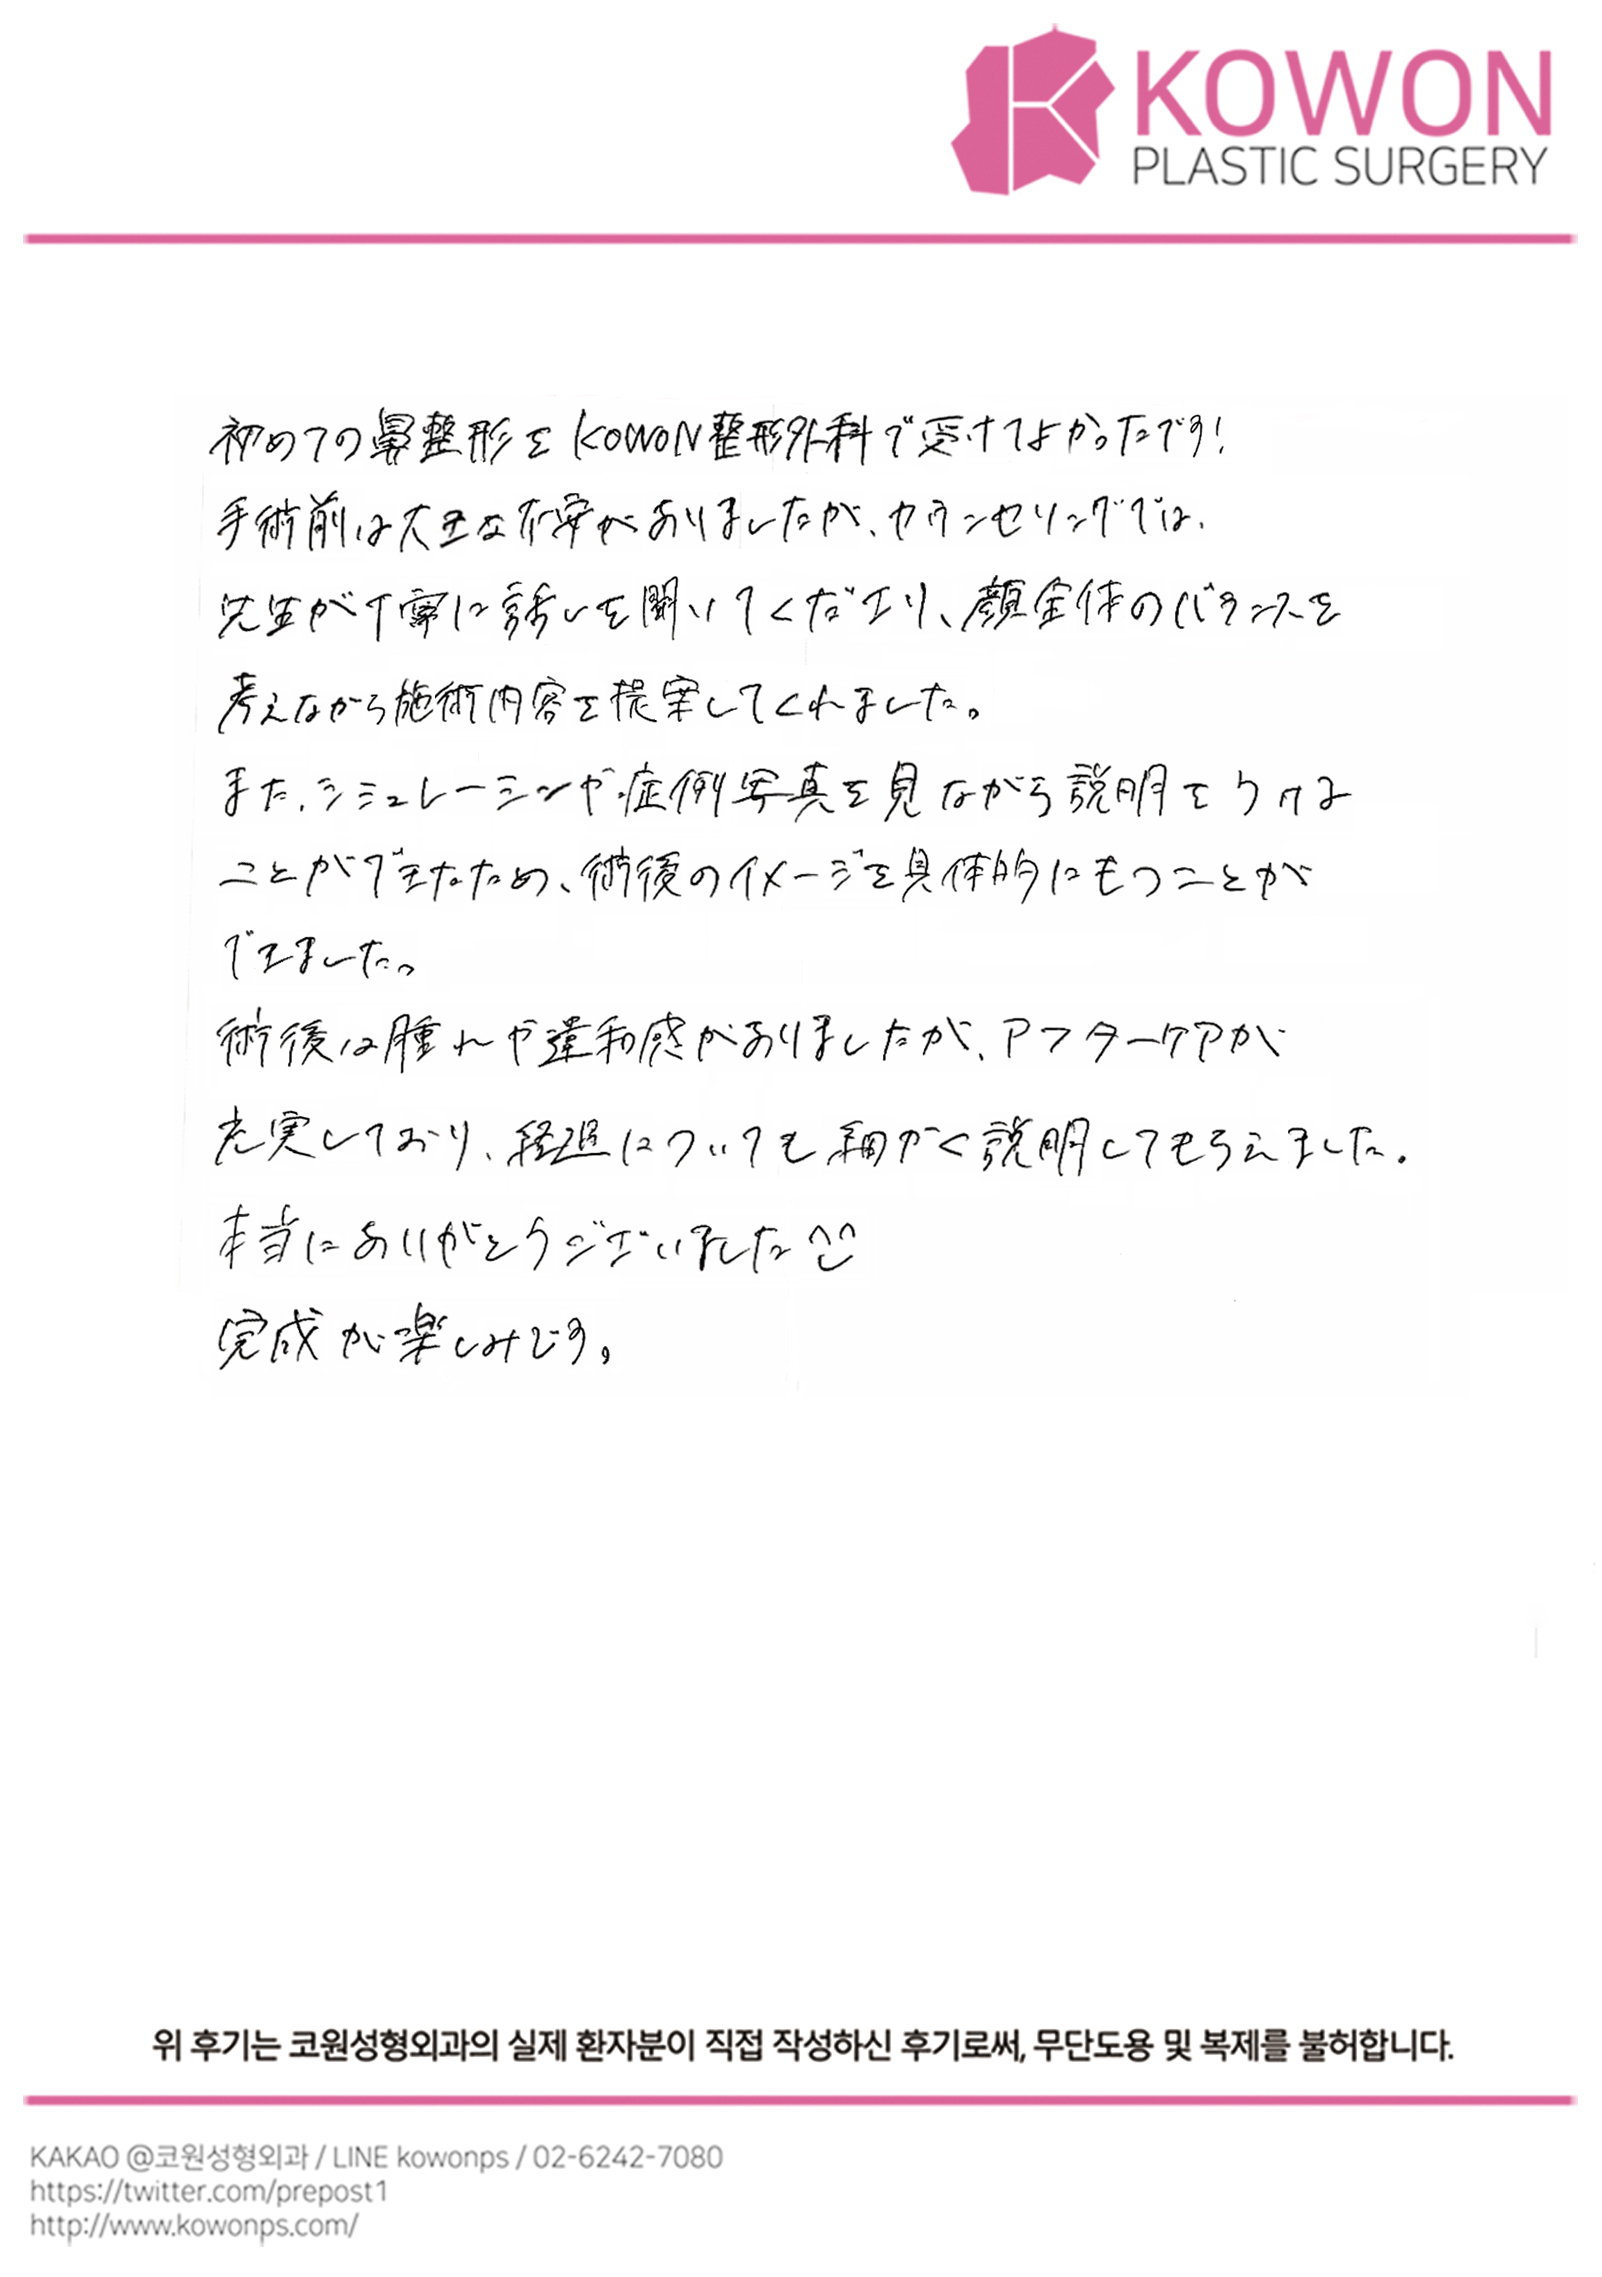 KOWON
PLASTIC SURGERY
初めての鼻整形をKOWON整形外科で受けてよかったです！
手術前は大きな不安がありましたが、カウンセリングでは、
先生が丁寧に話しを聞いてくださり、顔全体のバランスを
考えながら施術内容を提案してくれました。
また、シミュレーションや症例写真を見ながら説明をうける
ことができたため、術後のイメージを具体的にもつことが
できました。
術後は腫れや違和感がありましたが、アフターケアが
充実しており、経過についても細かく説明してもらえました。
本当にありがとうございました
完成が楽しみです。
위 후기는 코원성형외과의 실제 환자분이 직접 작성하신 후기로써, 무단도용 및 복제를 불허합니다.
KAKAO @코원성형외과 / LINE kowonps / 02-6242-7080
https://twitter.com/prepost1
http://www.kowonps.com/